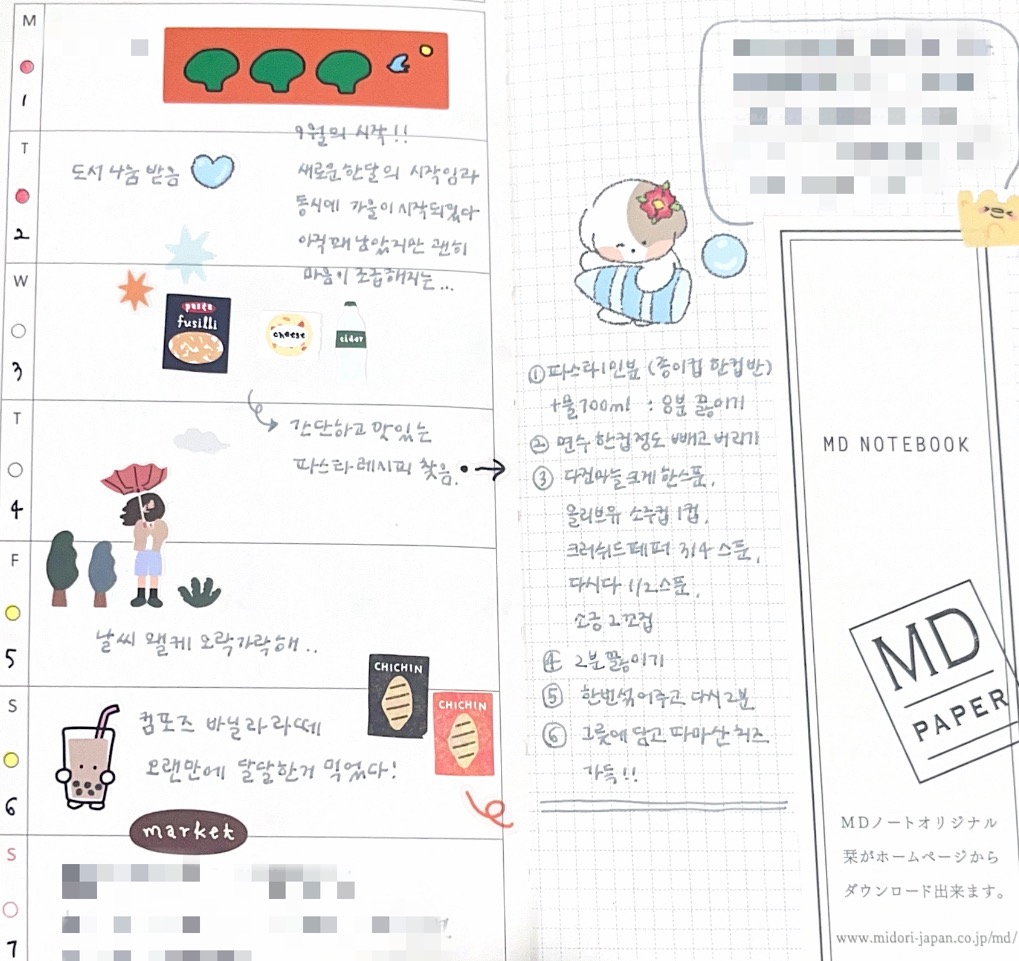 M
1
9월의 시작!!
T
2
도서 나눔 받음
새로운 한달의 시작임과
동시에 가을이 시작되었다
아직 꽤 남았지만 괜히
마음이 조급해지는...
W
3
pasta
fusilli
cheese
cider
T
4
간단하고 맛있는
파스타 레시피 찾음.
F
5
날씨 왤케 오락가락해..
CHICHIN
CHICHIN
S
6
컴포즈 바닐라라떼
오랜만에 달달한거 먹었다!
market
S
7
① 파스타 1인분 (종이컵 한컵반)
+물 700ml : 8분 끓이기
② 면수 한컵정도 빼고 버리기
③ 다진마늘 크게 한스푼,
올리브유 소주컵 1컵,
크러쉬드페퍼 3/4 스푼,
다시다 1/2스푼,
소금 2꼬집
④ 2분 끓이기
⑤ 한번 섞어주고 다시 2분
⑥ 그릇에 담고 파마산치즈
가득!!
MD NOTEBOOK
MD
PAPER
MDノートオリジナル
栞がホームページから
ダウンロード出来ます。
www.midori-japan.co.jp/md/